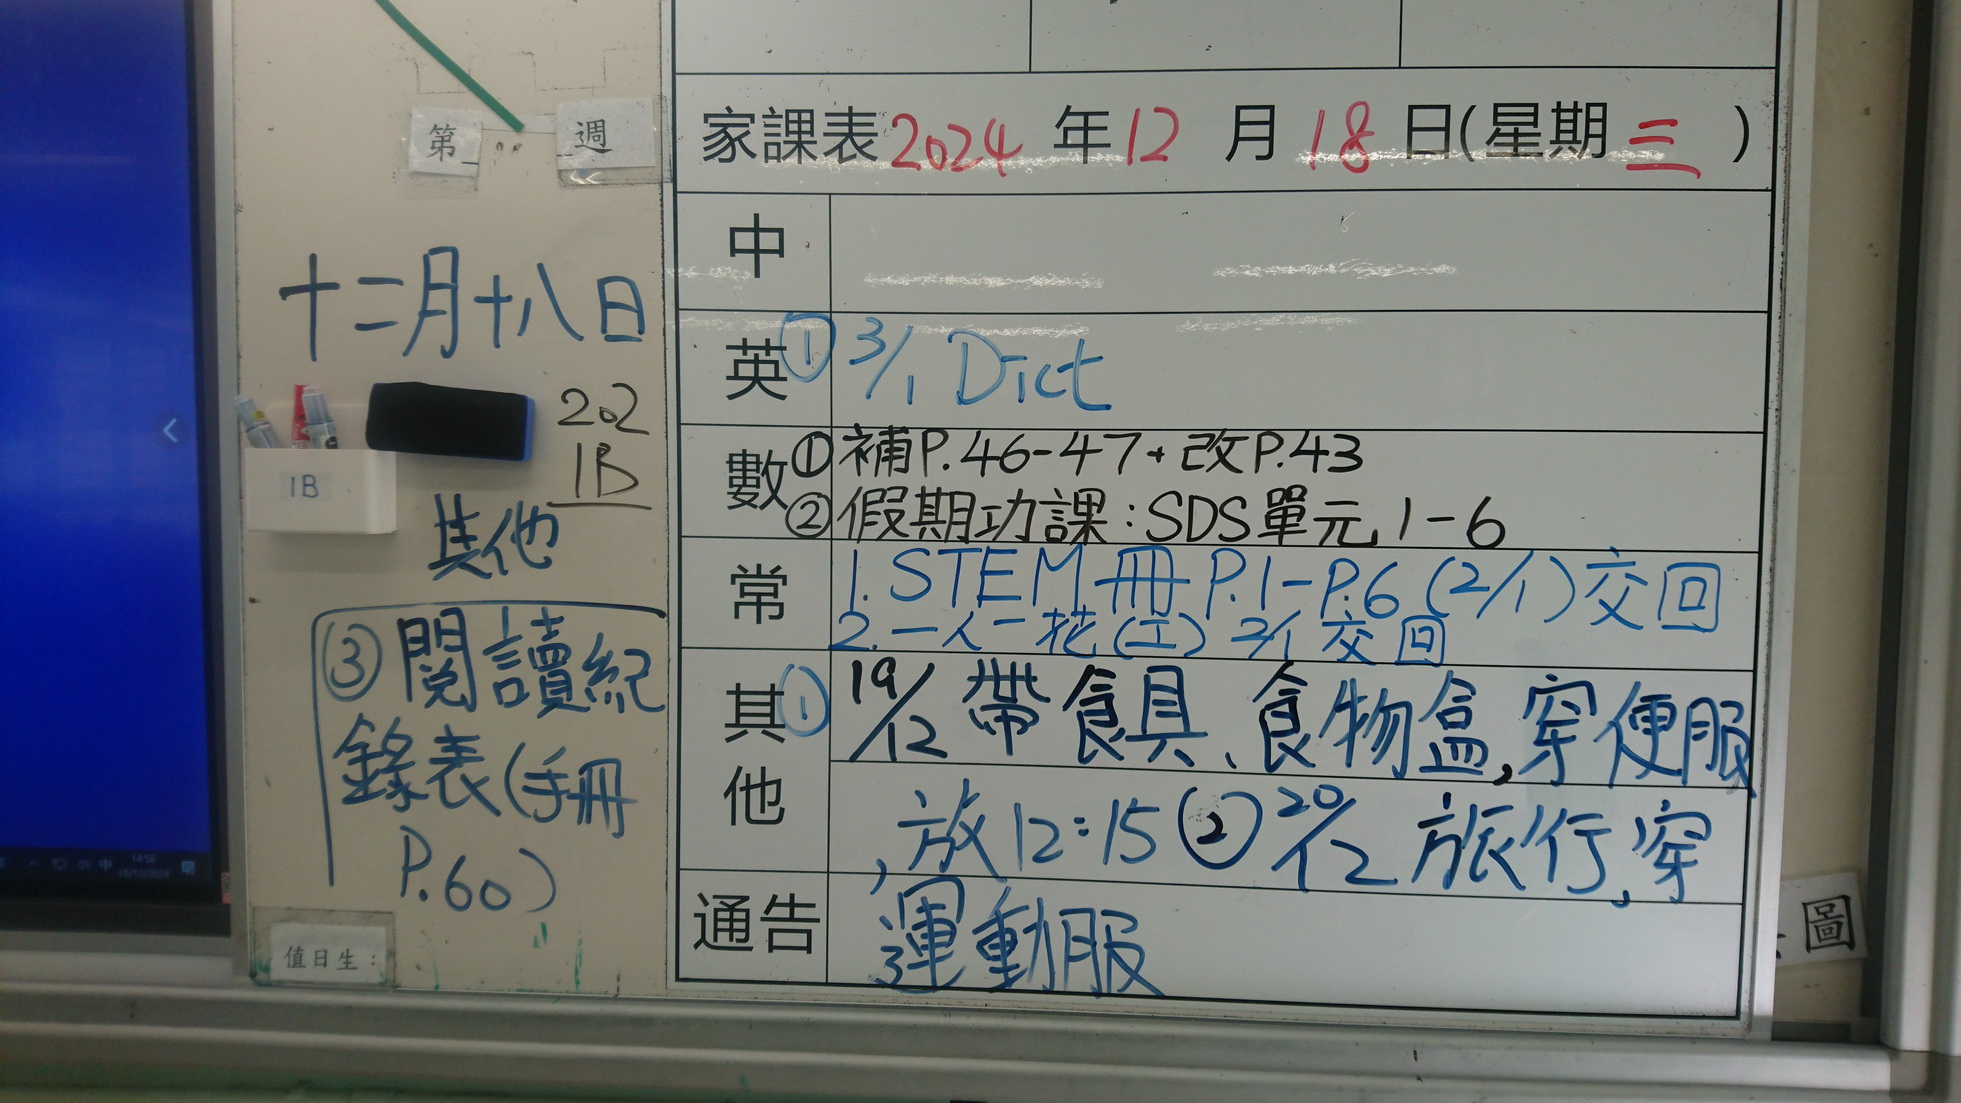 第 週
十二月十八日
202
1B
1B
其他
③閱讀紀
錄表(手冊
P.60)
值日生：
14:56
18/12/2024
家課表2024年12月18日(星期三)
中
英 ① 3/1 Dict
數 ①補P.46-47+改P.43
②假期功課:SDS單元1-6
常 1.STEM冊P.1-P.6(2/1)交回
2.一人一花(工) 2/1交回
其他 ① 19/12帶食具、食物盒,穿便服
,放12:15 ② 20/12旅行,穿
通告 運動服
圖